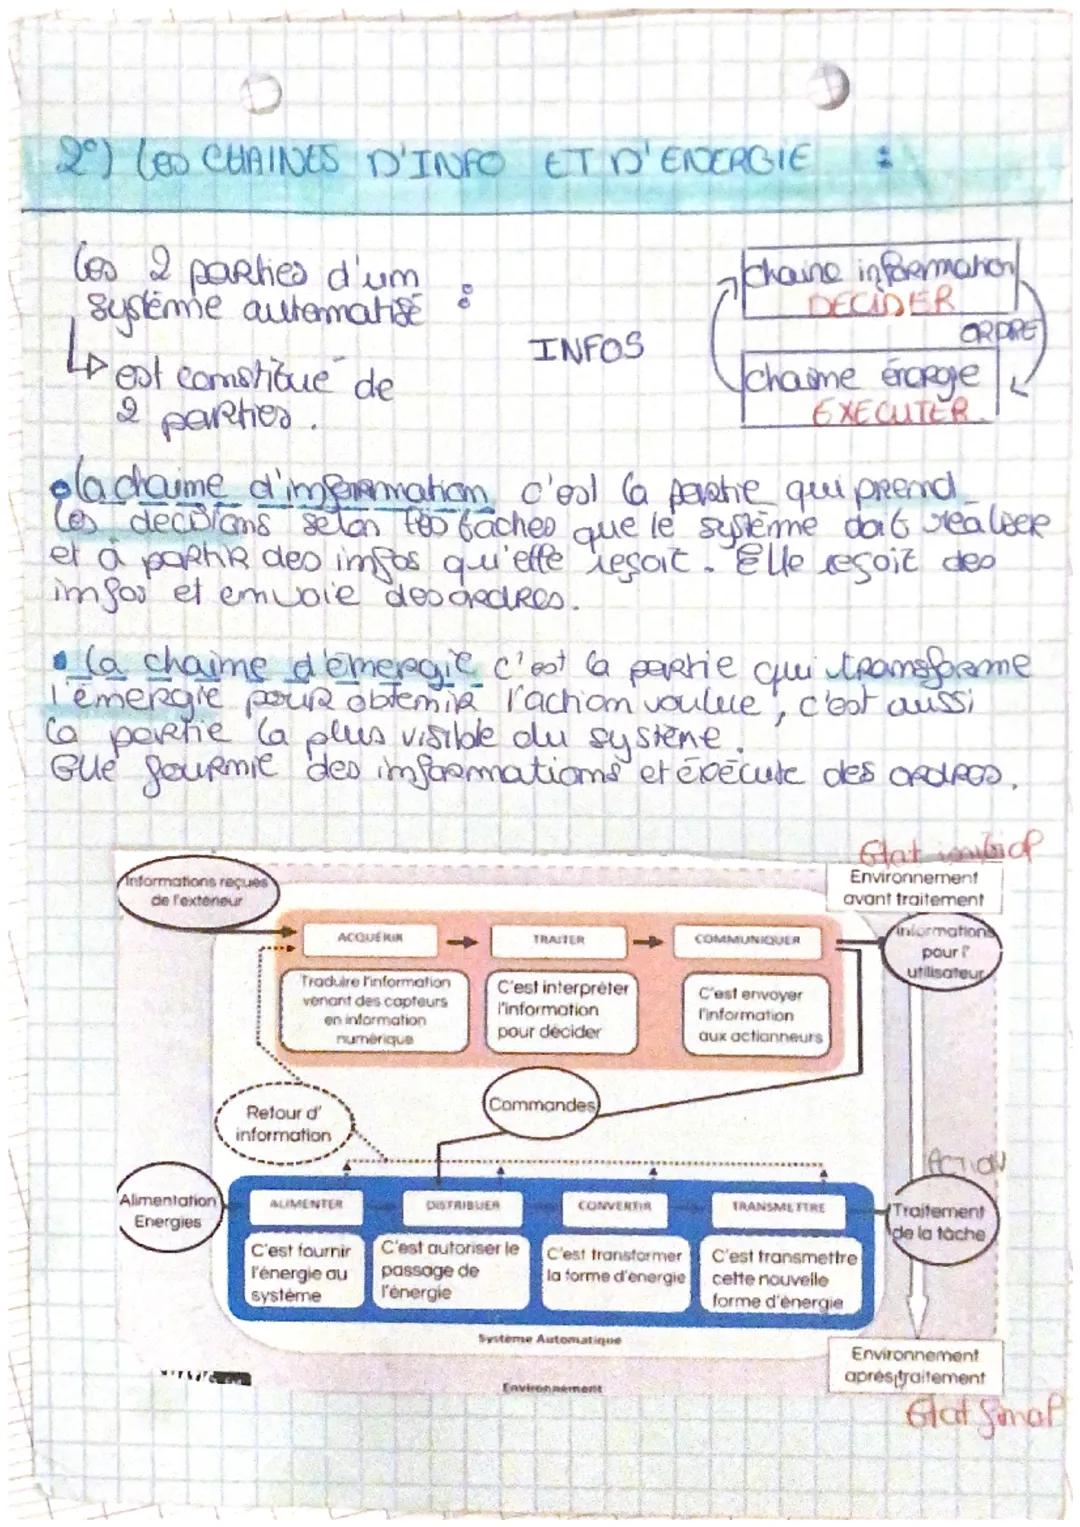 2°) les CHAINES D'INFO ET D'ENERGIE :
les 2 parties d'un
système automatisé :
↳ est constitué de
2 parties.
INFOS
chaine information
DECIDER
ORDRE
chaine énergie
EXECUTER
• la chaine d'information, c'est la partie qui prend
les décisions selon les taches que le système doit réaliser
et à partir des infos qu'elle reçoit. Elle reçoit des
infos et envoie des ordres.
• la chaine d'énergie c'est la partie qui transforme
l'énergie pour obtenir l'action voulue, c'est aussi
la partie la plus visible du système.
Elle fournie des informations et éxécute des ordres.
Etat initial
Environnement
avant traitement
Informations reçues
de l'extérieur
ACQUÉRIR
TRAITER
COMMUNIQUER
Informations
pour l'
utilisateur
Traduire l'information
venant des capteurs
en information
numérique
C'est interpréter
l'information
pour décider
C'est envoyer
l'information
aux actionneurs
Commandes
Retour d'
information
ACTION
Alimentation
Energies
ALIMENTER
DISTRIBUER
CONVERTIR
TRANSMETTRE
Traitement
de la tâche
C'est fournir
l'énergie au
système
C'est autoriser le
passage de
l'énergie
C'est transformer
la forme d'énergie
C'est transmettre
cette nouvelle
forme d'énergie
Système Automatique
Environnement
Environnement
après traitement
Etat final